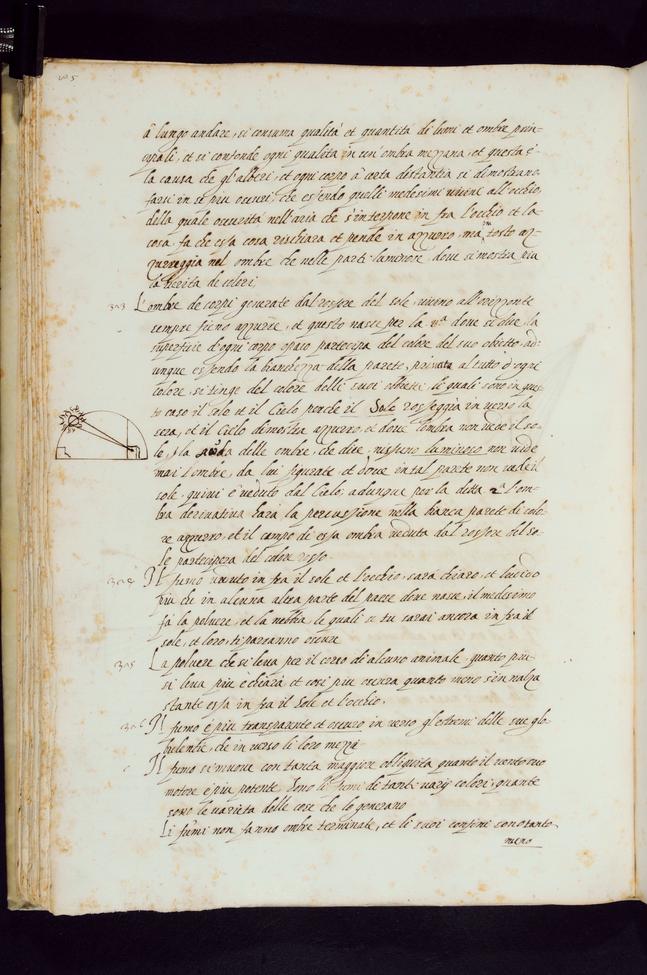 à lungo andare, si consuma qualità et quantità di lumi et ombre prin-
cipali, et si confonde ogni qualità in un' ombra mezzana, et questa è
la causa che gl'alberi, et ogni corpo à certa distantia si dimostrano
farsi in se piu oscuri, che essendo quelli medesimi vicini all'occhio,
della quale oscurità nell'aria che s'interpone in fra l'occhio et la
cosa fa che essa cosa rischiara et pende in azzurro, ma tosto az-
zurreggia nel ombre che nelle parti luminose dove si mostra piu
la verità de colori
303 L'ombre de corpi generate dal rossore del sole vicino all'orizzonte
sempre fieno azzurre, et questo nasce per la dove si dice la
superfitie d'ogni corpo opaco partecipa del colore del suo obietto, ad-
unque essendo la bianchezza della parete, privata al tutto d'ogni
colore, si tinge del colore delli suoi obietti li quali sono in ques-
to caso il sole et il Cielo perche il Sole rosseggia in verso la
sera, et il Cielo dimostra azzurro, et dove l'ombra non vede il so-
le, la delle ombre, che dice, nessuno luminoso non vide
mai l'ombre, da lui figurate et dove in tal parete non vede il
sole quivi è veduto dal Cielo, adunque per la detta l'om-
bra derivativa harà la percussione nella bianca parete di colo-
re azzurro, et il campo di essa ombra veduta dal rossore del so-
le participera del colore rosso.
304 Il fumo veduto in fra il sole et l'occhio, sarà chiaro, et lucido
piu che in alcuna altra parte del paese dove nasce, il medesimo
fa la polvere, et la nebbia, le quali se tu sarai ancora in fra il
sole, et loro, ti parranno oscure
305 La polvere che si leva per il corso di alcuno animale, quanto piu
si leva piu è chiara et cosi piu oscura quanto meno s'in nalza
stante essa in fra il Sole et l'occhio.
306 Il fumo è piu transparente et oscuro in verso gl'estremi delle sue glo-
bulentie, che in verso li loro mezzi
Il fumo si muove con tanta maggiore obliquita quanto il vento suo
motore è piu potente. Sono li fumi di tanti varij colori, quante
sono le varieta delle cose che lo generano
Li fumi non fanno ombre terminate, et li suoi confini sono tanto
meno